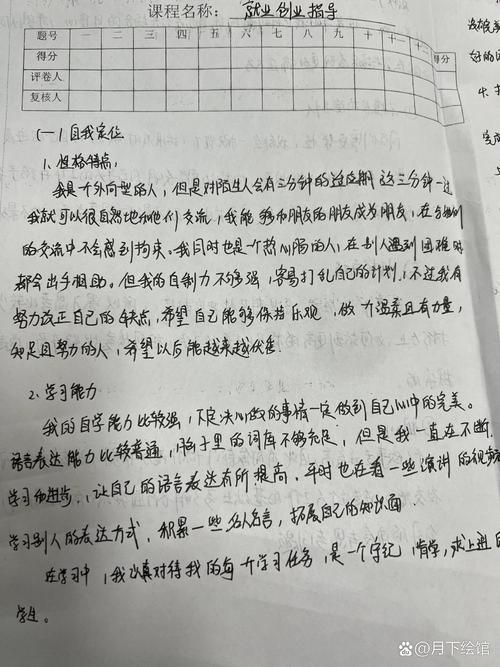 课程名称：就业创业指导
题号 一 二 三 四 五 六 七 八 九 十 十一 十二
得分 得分
评卷人
复核人
(一)自我定位
1. 性格特点：
我是一个外向型的人，但是对陌生人会有三分钟的适应期 这三分钟一过
我就可以很自然地和他们交流，我能够和朋友的朋友成为朋友，在与他们
的交流中不会感到拘束。我同时也是个热心肠的人，在别人遇到困难时
都会出手相助。但我的自制力不够强，容易打乱自己的计划，不过我有
努力改正自己的缺点，希望自己能够保持乐观，做个温柔且有力量，
知足且努力的人，希望以后能越来越优秀.
2. 学习能力
我的自学能力比较强，下定决心做的事情一定做到自己心中的完美。
语言表达能力比较普通，脑子里的词库不够充足，但是我一直在不断
学习和进步，让自己的语言表达有所提高，平时也在看一些演讲的视频
学习别人的表达方式，积累一些名人名言，拓展自己的知识面.
在学习中，我认真对待我的每个学习任务，是一个守纪，肯学，求上进的
学生。
没被
好的
4.
完成
Bai百度@月下绘馆